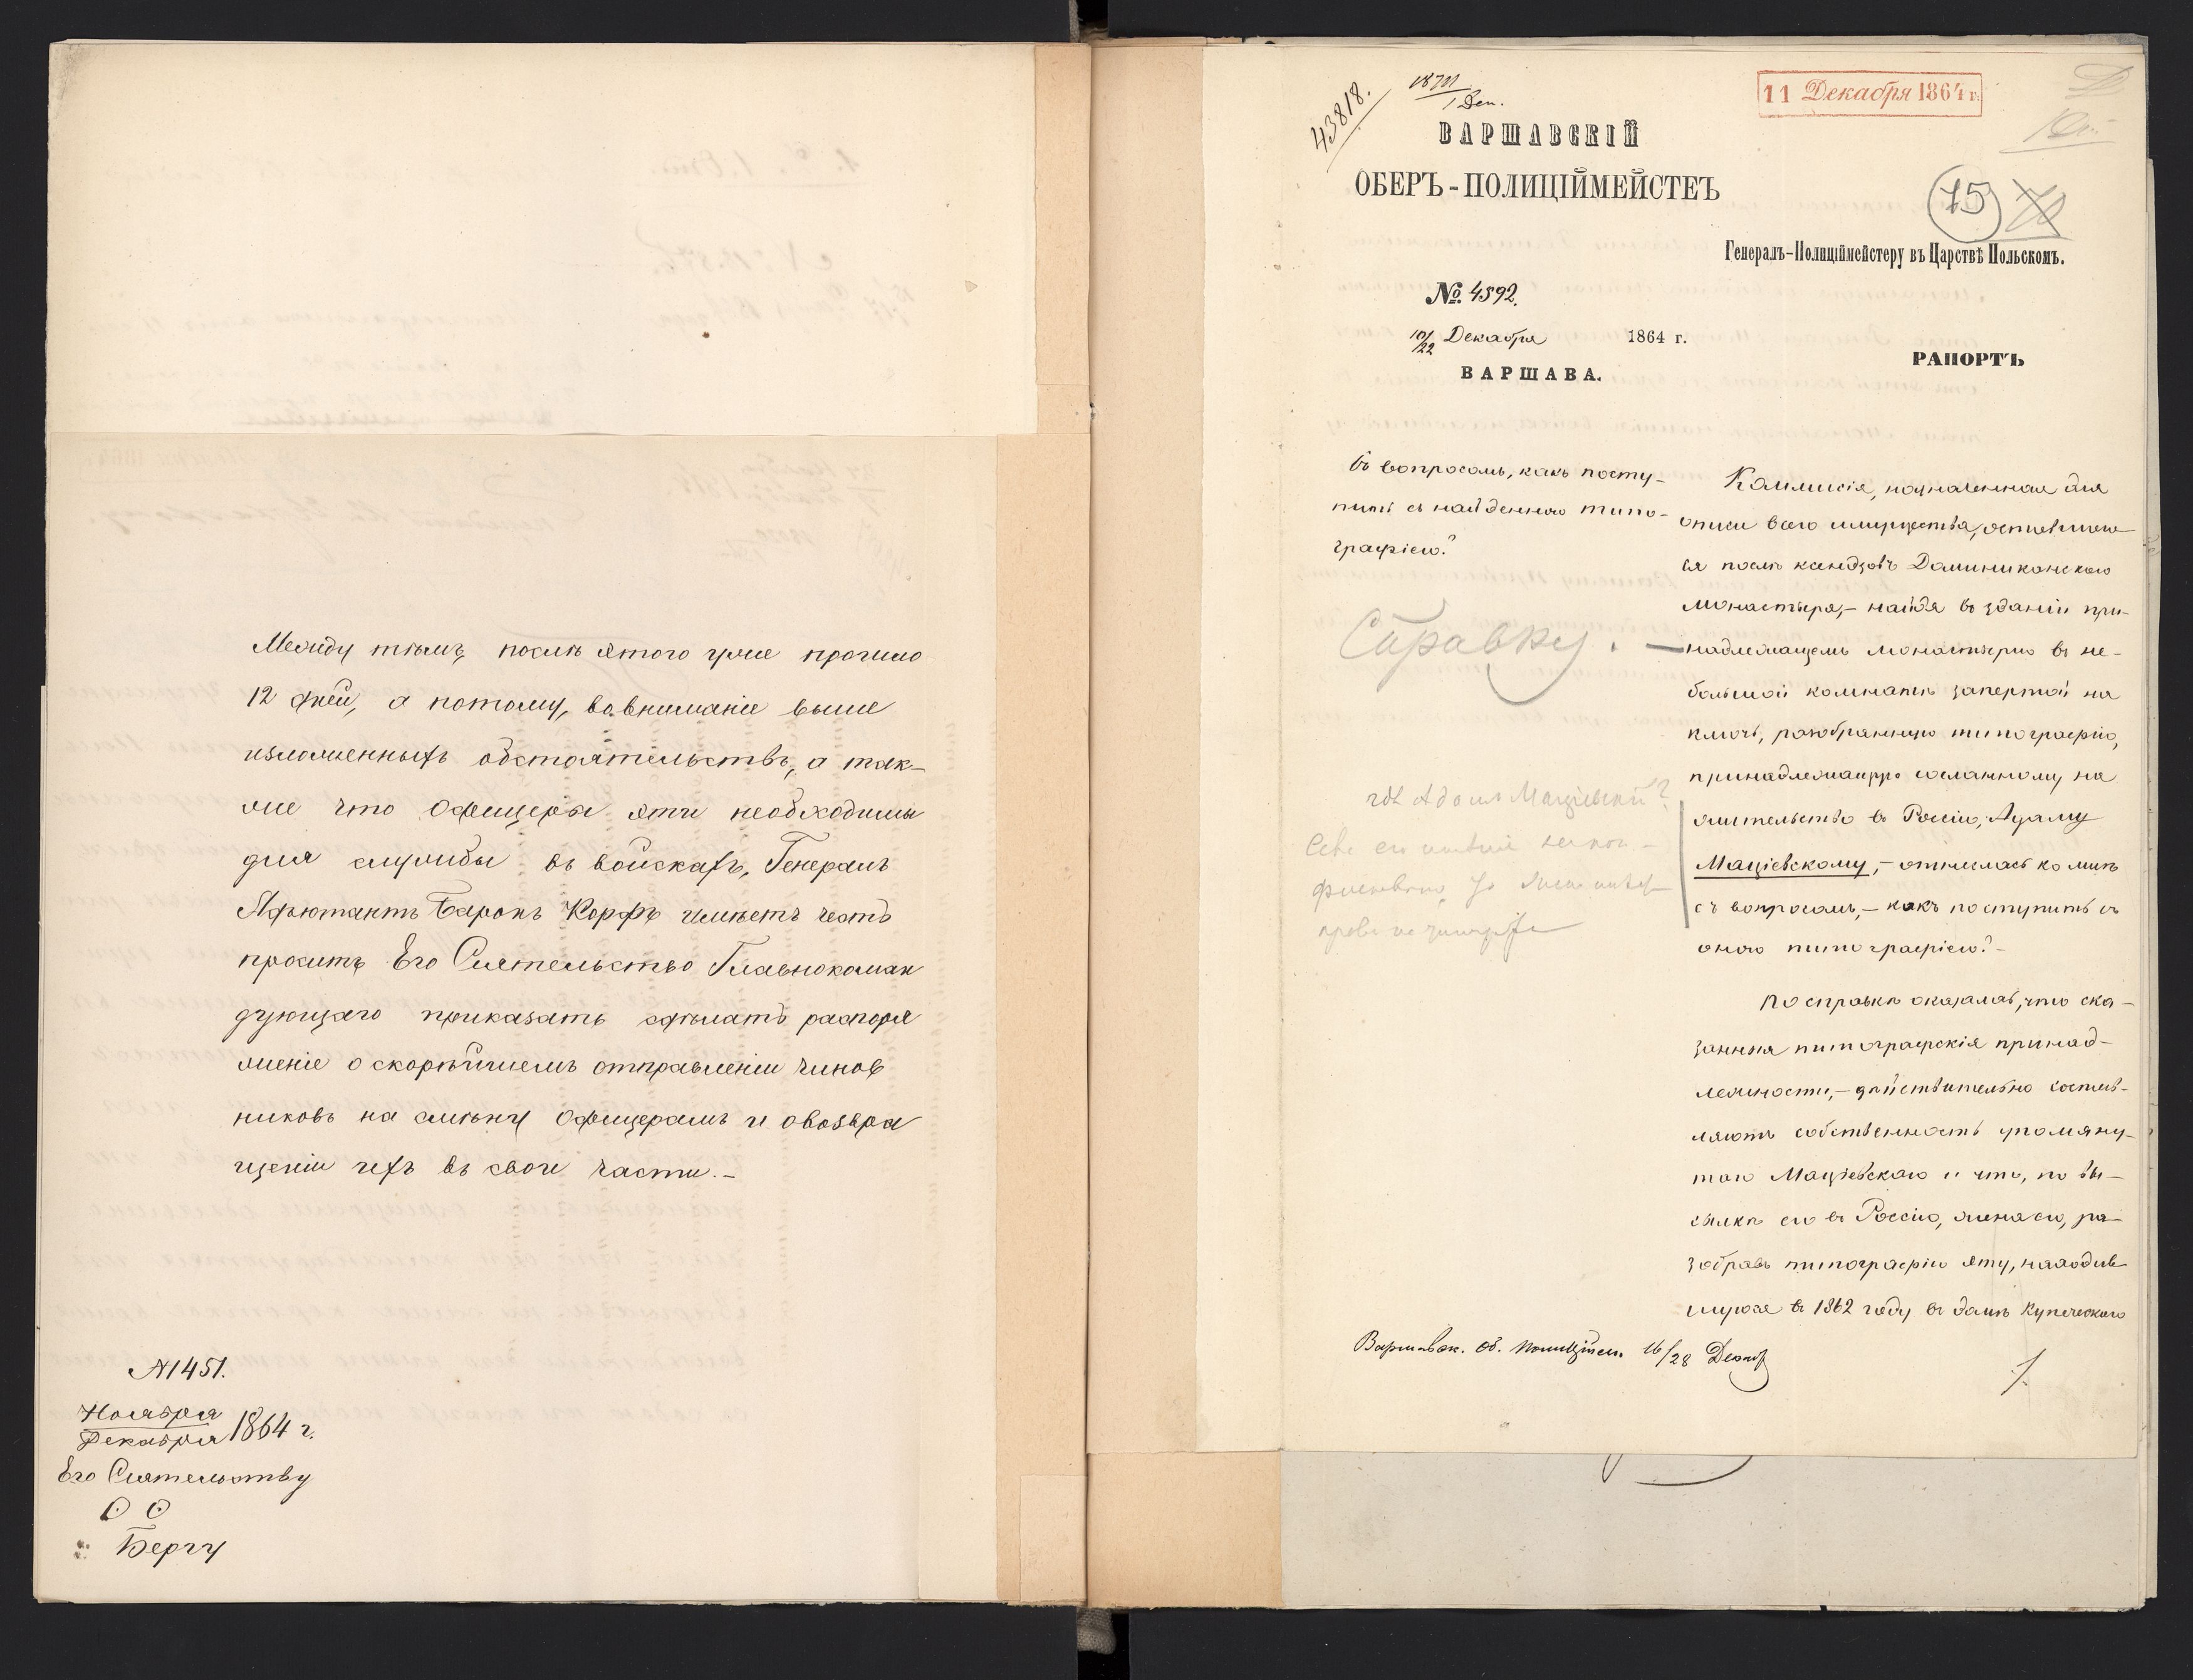 Между тѣмъ, послѣ этого уже прошло
12 дней, а потому, вовниманіе выше
изложенныхъ обстоятельствъ, а так-
же что офицеры эти необходимы
для службы въ войскахъ, Генералъ
Адъютантъ Баронъ Корфъ имѣетъ честь
просить Его Сіятельство Главнокоман
дующаго приказать сдѣлать распоря
женіе о скорѣйшемъ отправленіи чинов
никовъ на смѣну офицерамъ и овозвра
щеніи ихъ въ свои части.-
№1451.
Ноября
Декабря 1864 г.
Его Сіятельству
Бергу
43818.
1 Деп.
11 Декабря 1864 г.
ВАРШАВСКІЙ
ОБЕРЪ-ПОЛИЦІЙМЕЙСТЕЪ
75
Генералъ-Полиціймейстеру въ Царствѣ Польскомъ.
№ 4592.
10/22 Декабря 1864 г.
ВАРШАВА.
РАПОРТЪ
Съ вопросомъ, какъ посту-
пить съ найденною типо-
графіею?
Справку.
гдѣ Адамъ Мацѣевскій?
Коммисія, назначенная для
описи всего имущества, оставшаго-
ся послѣ ксендзовъ Доминиканскаго
монастыря,- найдя въ зданіи при-
надлежащемъ монастырю въ не-
большой комнатѣ запертой на
ключъ, разобранную типографію,
принадлежащую сосланному на
жительство въ Россію, Адаму
Мацѣевскому,- отнеслась ко мнѣ
съ вопросомъ,- какъ поступить съ
оною типографіею?-
По справкѣ оказалось, что ска-
занныя типографскія принад-
лежности,- дѣйствительно состав-
ляютъ собственность упомяну-
таго Мацѣевскаго и что, по вы-
сылкѣ его въ Россію, жена его, ра-
зобравъ типографію эту, находив
шуюся въ 1862 году въ домѣ Купеческаго
Варшавск. Об. Полиційм. 16/28 Декаб